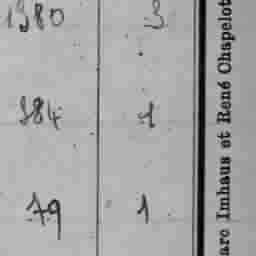 1380 3
384 1
79 1
arc Imhaus et René Chapelot